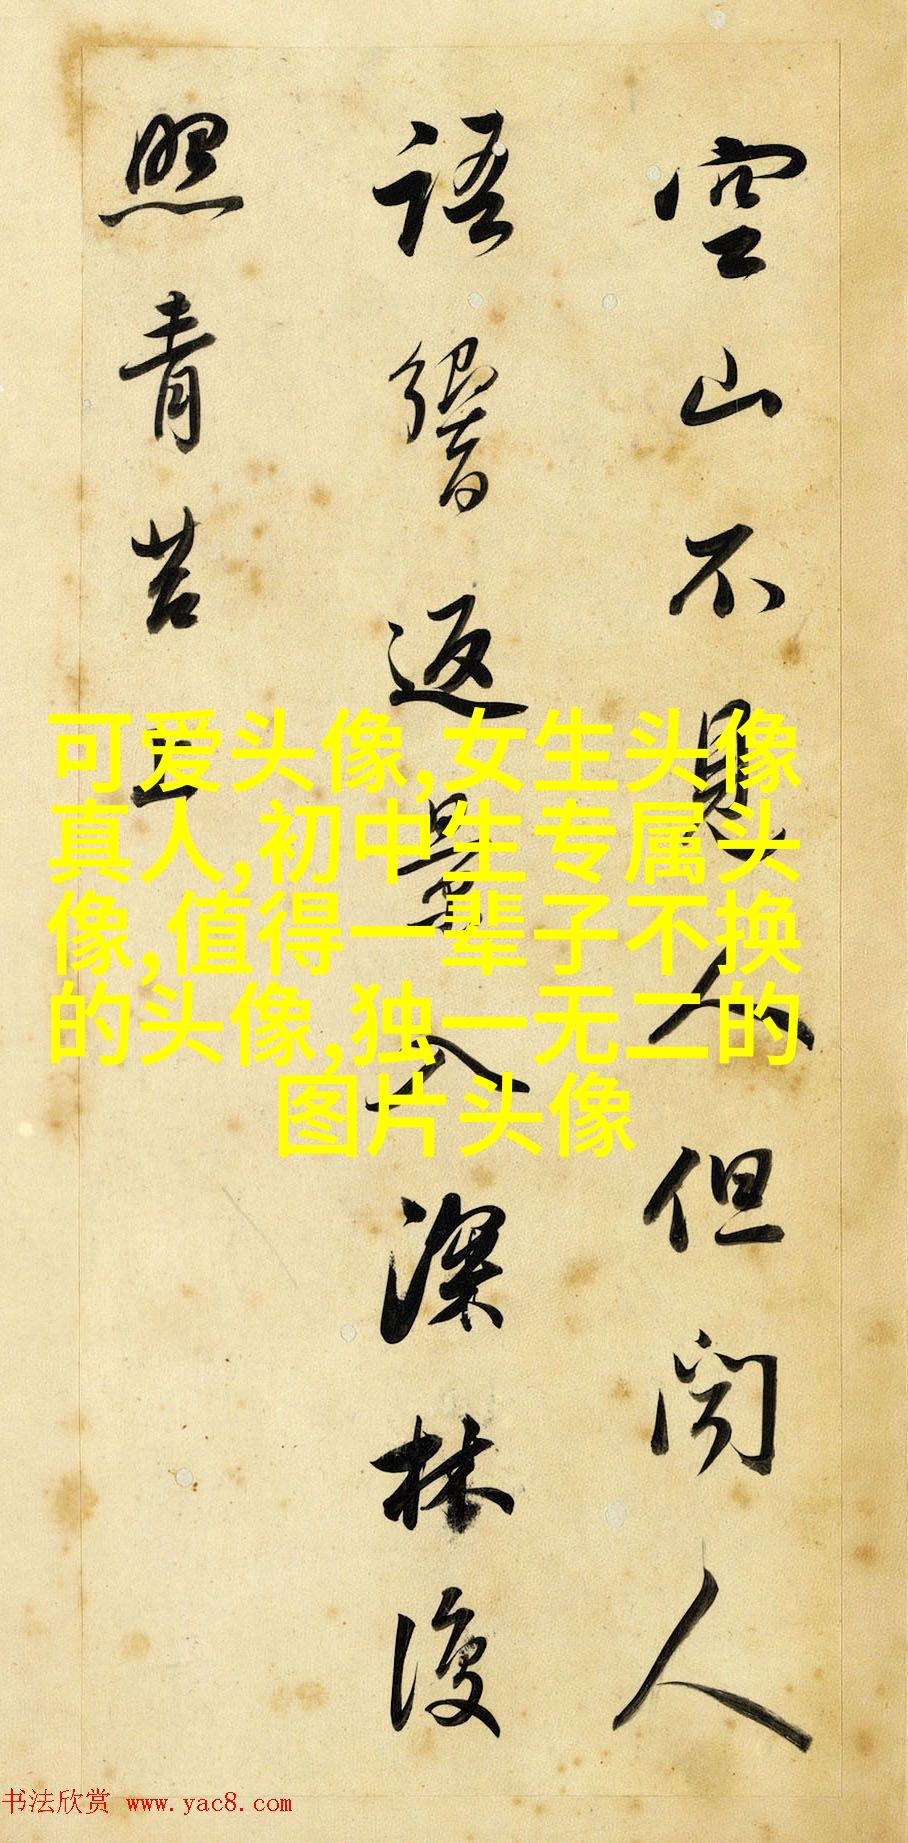 空山不見人但闻人
語響返景入深林復
照青苔上
可爱头像,女生头像
真人,初中生专属头
像,值得一辈子不换
的头像,独一无二的
图片头像
书法欣赏 www.yac8.com